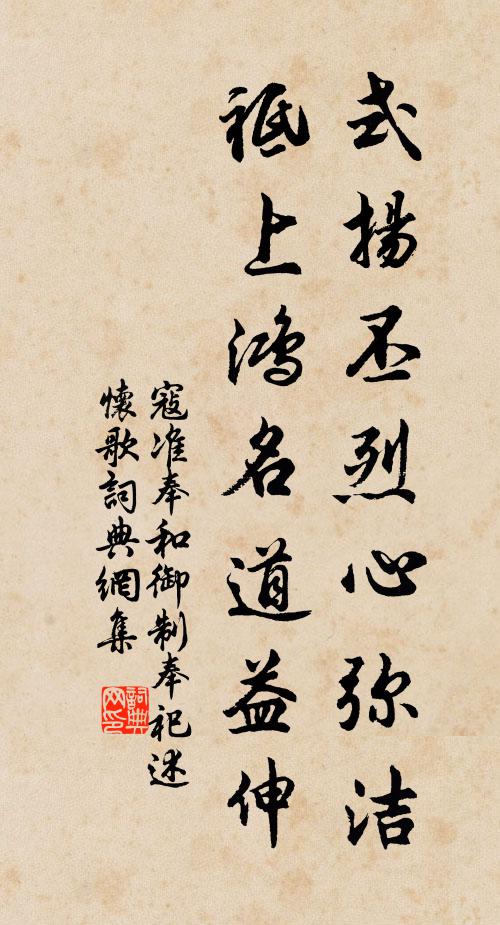 式揚丕烈心弥洁
祗上鸿名道益伸
寇准奉和御制奉祀述
懷歌詞典網集
詞典网印